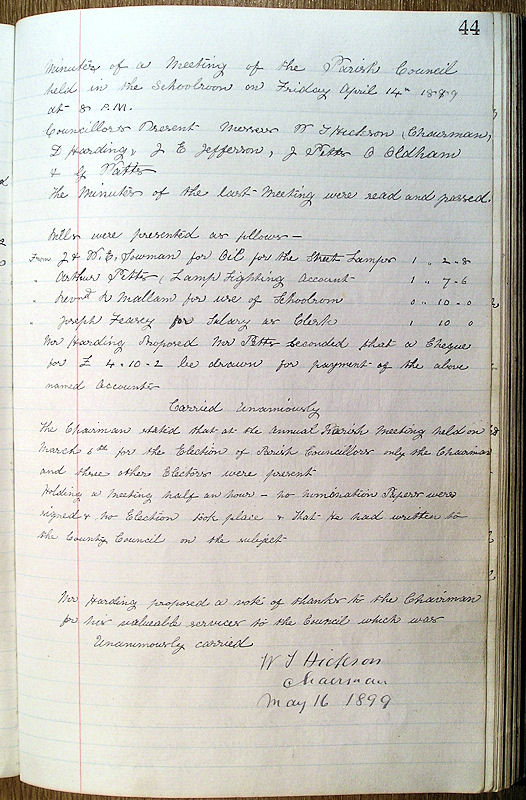 44
Minutes of a Meeting of the Parish Council
held in the Schoolroom on Friday April 14th 1889
at 8 P.M.
Councillors Present Messrs W T Hickson (Chairman,
D Harding, J E Jefferson, J Petts O Oldham
& G Watts
The Minutes of the last Meeting were read and passed.
Bills were presented as follows —
From J & W. E. Sowman for Oil for the Street Lamps 1 " 2 - 8
" Arthur Petts, Lamp Lighting Account 1 " 7 - 6
" Revnd R Mallam for use of Schoolroom 0 " 10 - 0
" Joseph Feasey for Salary as Clerk 1 10 0
Mr Harding Proposed Mr Petts seconded that a Cheque
for £ 4 - 10 - 2 be drawn for payment of the above
named Accounts
Carried Unaniously
The Chairman stated that at the Annual Parish Meeting held on
March 6th for the Election of Parish Councillors only the Chairman
and three other Electors were present
Holding a meeting half an hour — no nomination Papers were
signed & no Election took place & That He had written to
the County Council on the subject
Mr Harding proposed a vote of thanks to the Chairman
for his valueable services to the Council which was
Unanimously carried
W T Hickson
Chairman
May 16 1899